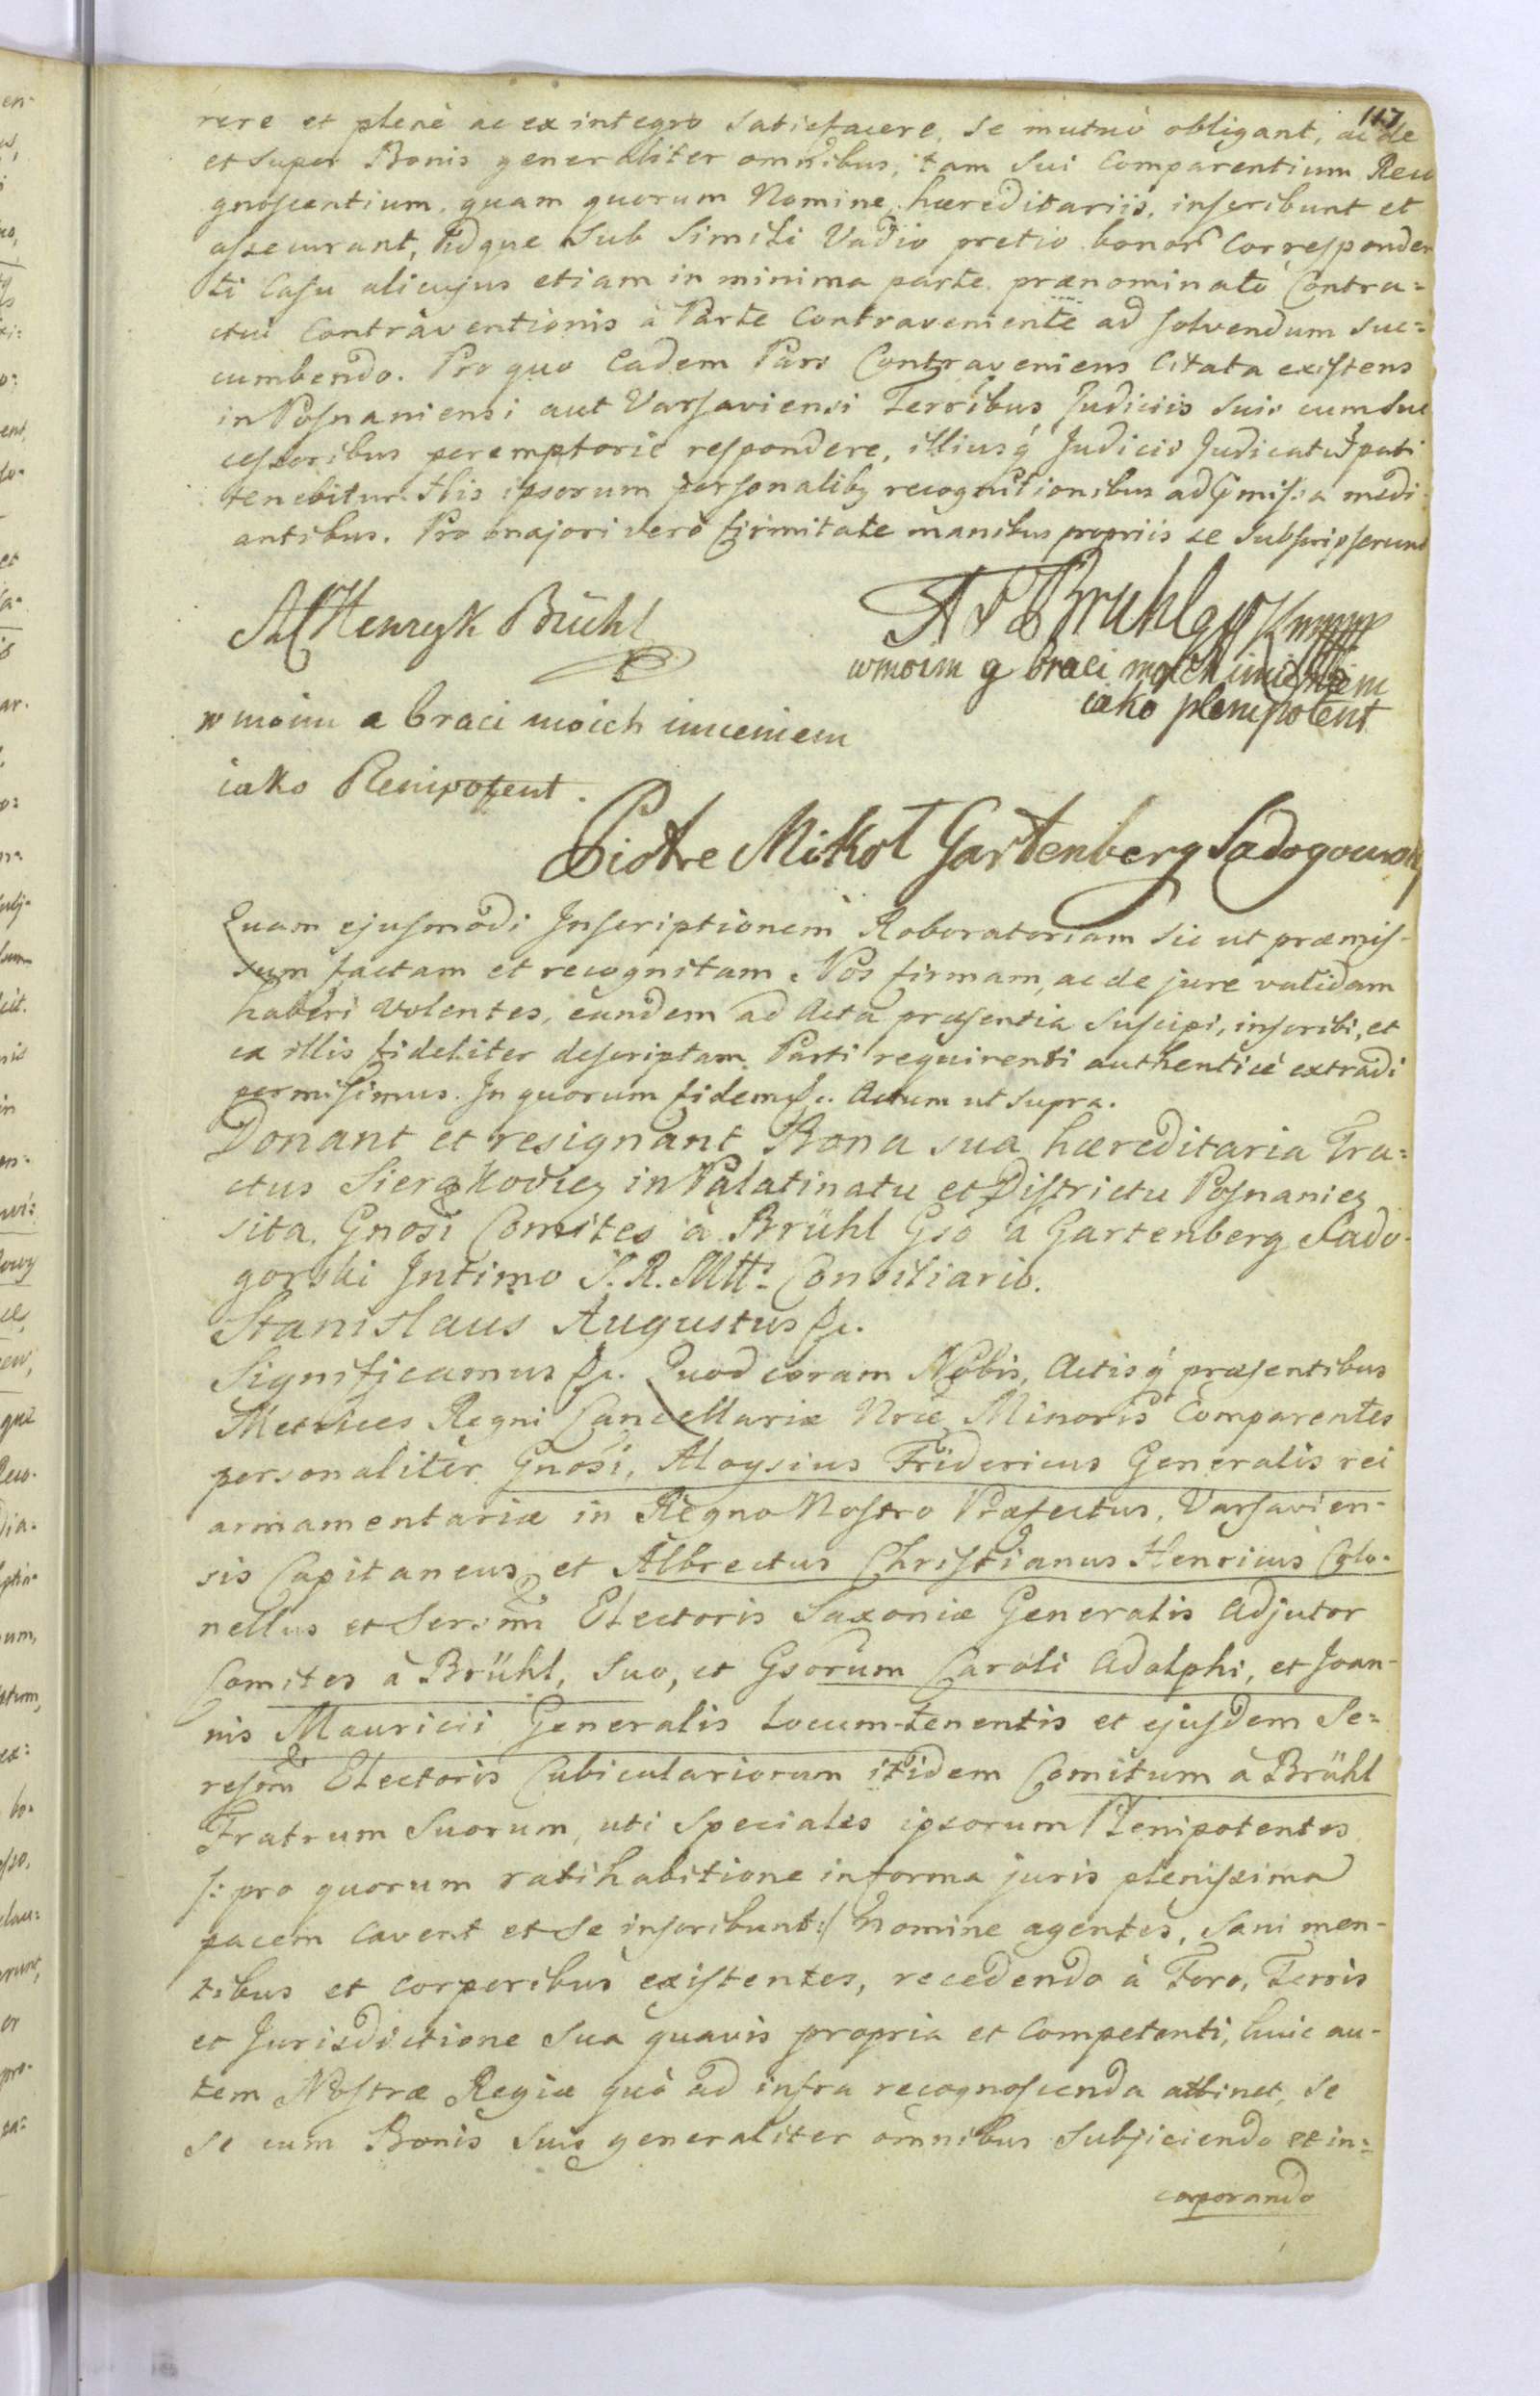 117
rere et plenè ac ex integro satisfacere, se mutuò obligant, ac de
et super Bonis generaliter omnibus, tam sui Comparentium Reco
gnoscentium, quam quorum Nomine, hæreditariis, inscribunt et
assecurant, idque sub simili Vadio pretio bonor̃ Corresponden
ti Casu alicujus etiam in minima parte prænominato Contra=
ctui Contraventionis à Parte Contraveniente ad solvendum suc=
cumbendo. Pro quo Eadem Pars Contraveniens Citata existens
in Posnaniensi aut Varsaviensi Terr̃ibus Judiciis suis cum suc
cessoribus peremptoriè respondere, illiusq́ Judicii Judicatũ pati
tenebitur. His ipsorum personalibꝫ recognitionibus ad p̃missa medi
antibus. Pro majori verò firmitate manibus propriis se subscripserunt
Henryk Brühl
w moim a braci moich imieniem
iako Plenipotent.
A F Brühl
w moim y braci moich imieniem
iako plenipotent
Piotre Mikoł Gartenberg Sadogorski
Quam ejusmodi Inscriptionem Roboratoriam sic ut præmis-
sum factam et recognitam Nos firmam, ac de jure validam
haberi volentes, eandem ad Acta præsentia suscipi, inscribi, et
ex illis fideliter descriptam Parti requirenti authenticè extradi
permisimus. In quorum fidem &c. Actum ut supra.
Donant et resignant Bona sua hæreditaria Tra=
ctus Sierakoviez in Palatinatu et Districtu Posnanien
sita, Gnosi Comites à Brühl Gso à Gartenberg Sado-
gorski Intimo S. R. Mtt: Consiliario.
Stanislaus Augustus &c.
Significamus &c. Quod coram Nobis, Actisq́ præsentibus
Metrices Regni Cancellariæ Nræ Minoris Comparentes
personaliter Gnosi, Aloysius Fridericus Generalis rei
armamentariæ in Regno Nostro Præfectus, Varsavien-
sis Capitaneus, et Albrectus Christianus Henricus Colo-
nellus et Ser:mi Electoris Saxoniæ Generalis Adjutor
Comites à Brühl, suo, et Gsorum Caroli Adolphi, et Joan-
nis Mauricii Generalis Locum-tenentis et ejusdem Se=
reṡmi Electoris Cubiculariorum itidem Comitum à Brühl
Fratrum suorum, uti speciales ipsorum Plenipotentes
/: pro quorum ratihabitione in forma juris plenissima
pacem cavent et se inscribunt :/ Nomine agentes, sani men-
tibus et corporibus existentes, recedendo à Foro, Terris
et Jurisdictione sua quavis propria et Competenti, huic au-
tem Nostræ Regiæ quò ad infra recognoscenda attinet, se
se cum Bonis suis generaliter omnibus subjiciendo et in=
corporando